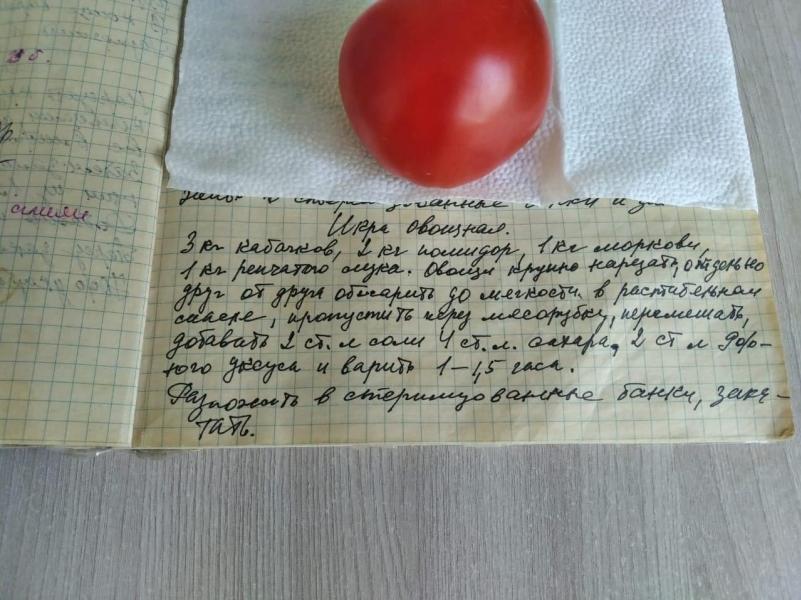 вб.
синим
Икра овощная.
3 кг кабачков, 2 кг помидор, 1 кг моркови,
1 кг репчатого лука. Овощи крупно нарезать, отдельно
друг от друга обжарить до мягкости в растительном
масле, пропустить через мясорубку, перемешать,
добавить 2 ст. л соли 4 ст. л. сахара, 2 ст л 9%-
ного уксуса и варить 1-1,5 часа.
Разложить в стерилизованные банки, заку-
тать.